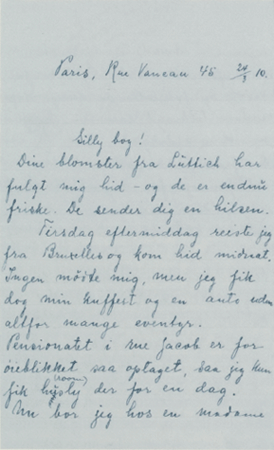 Paris, Rue Vaneau 45 24/3 10.
Silly boy!
Dine blomster fra Lüttich har
fulgt mig hid – og de er endnu
friske. De sender dig en hilsen.
Tirsdag eftermiddag reiste jeg
fra Bruxelles og kom hid midnat.
Ingen mödte mig, men jeg fik
dog min kuffert og en auto uden
altfor mange eventyr.
Pensionatet i rue Jacob er for
öieblikket saa optaget, saa jeg kun
fik (room) der for en dag.
Nu bor jeg hos en madame